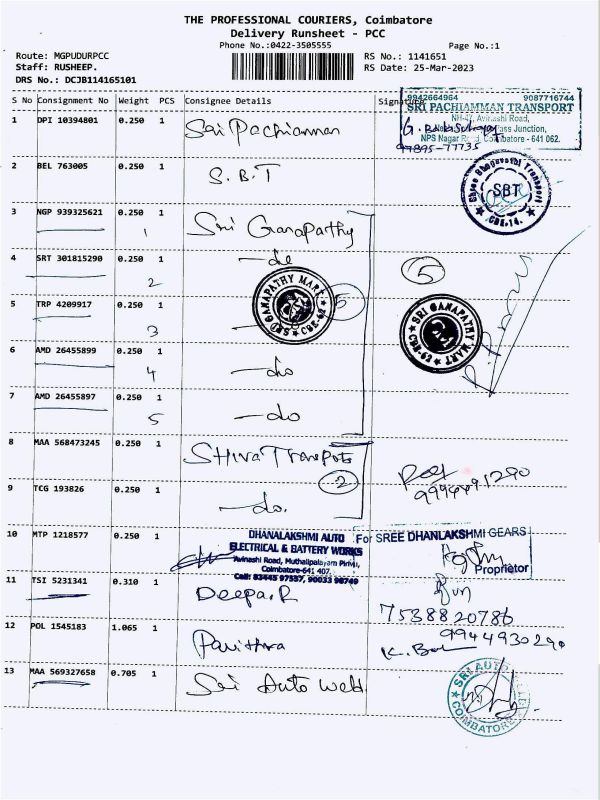 THE PROFESSIONAL COURIERS, Coimbatore
Delivery Runsheet - PCC
Phone No.:0422-3505555
Page No.:1
Route: MGPUDURPCC
Staff: RUSHEEP.
DRS No.: DCJB114165101
RS No.: 1141651
RS Date: 25-Mar-2023
S No Consignment No Weight PCS Consignee Details Signature
9942664964 9087716744
SRI PACHIAMMAN TRANSPORT
NH-47, Avinashi Road,
Junction,
NPS Nagar Coimbatore - 641 062.
97895-77735
1 DPI 10394801 0.250 1 Sri Pachiamman
2 BEL 763005 0.250 1 S.B.T
Shree Bhagavathi Transport
SBT
CBE-14.
3 NGP 939325621 0.250 1 Sri Ganapathy
1
4 SRT 301815290 0.250 1 - do
2
5
5 TRP 4209917 0.250 1
3
GANAPATHY MART
CBE-62
5
SRI GANAPATHY MART
CBE-62
6 AMD 26455899 0.250 1 - do
4
7 AMD 26455897 0.250 1 - do
5
8 MAA 568473245 0.250 1 Shiva Transports
2
9 TCG 193826 0.250 1 - do.
9994491290
10 MTP 1218577 0.250 1
DHANALAKSHMI AUTO
ELECTRICAL & BATTERY WORKS
Avinashi Road, Muthalipalayam Pirivu,
Coimbatore-641 407.
Cell: 93445 97557, 90033 98749
For SREE DHANLAKSHMI GEARS
Proprietor
11 TSI 5231341 0.310 1 Deepa.R
7538820786
12 POL 1545183 1.065 1 Pavithra
9944930290
13 MAA 569327658 0.705 1 Sri Auto Weld
SRI AUTO
COIMBATORE